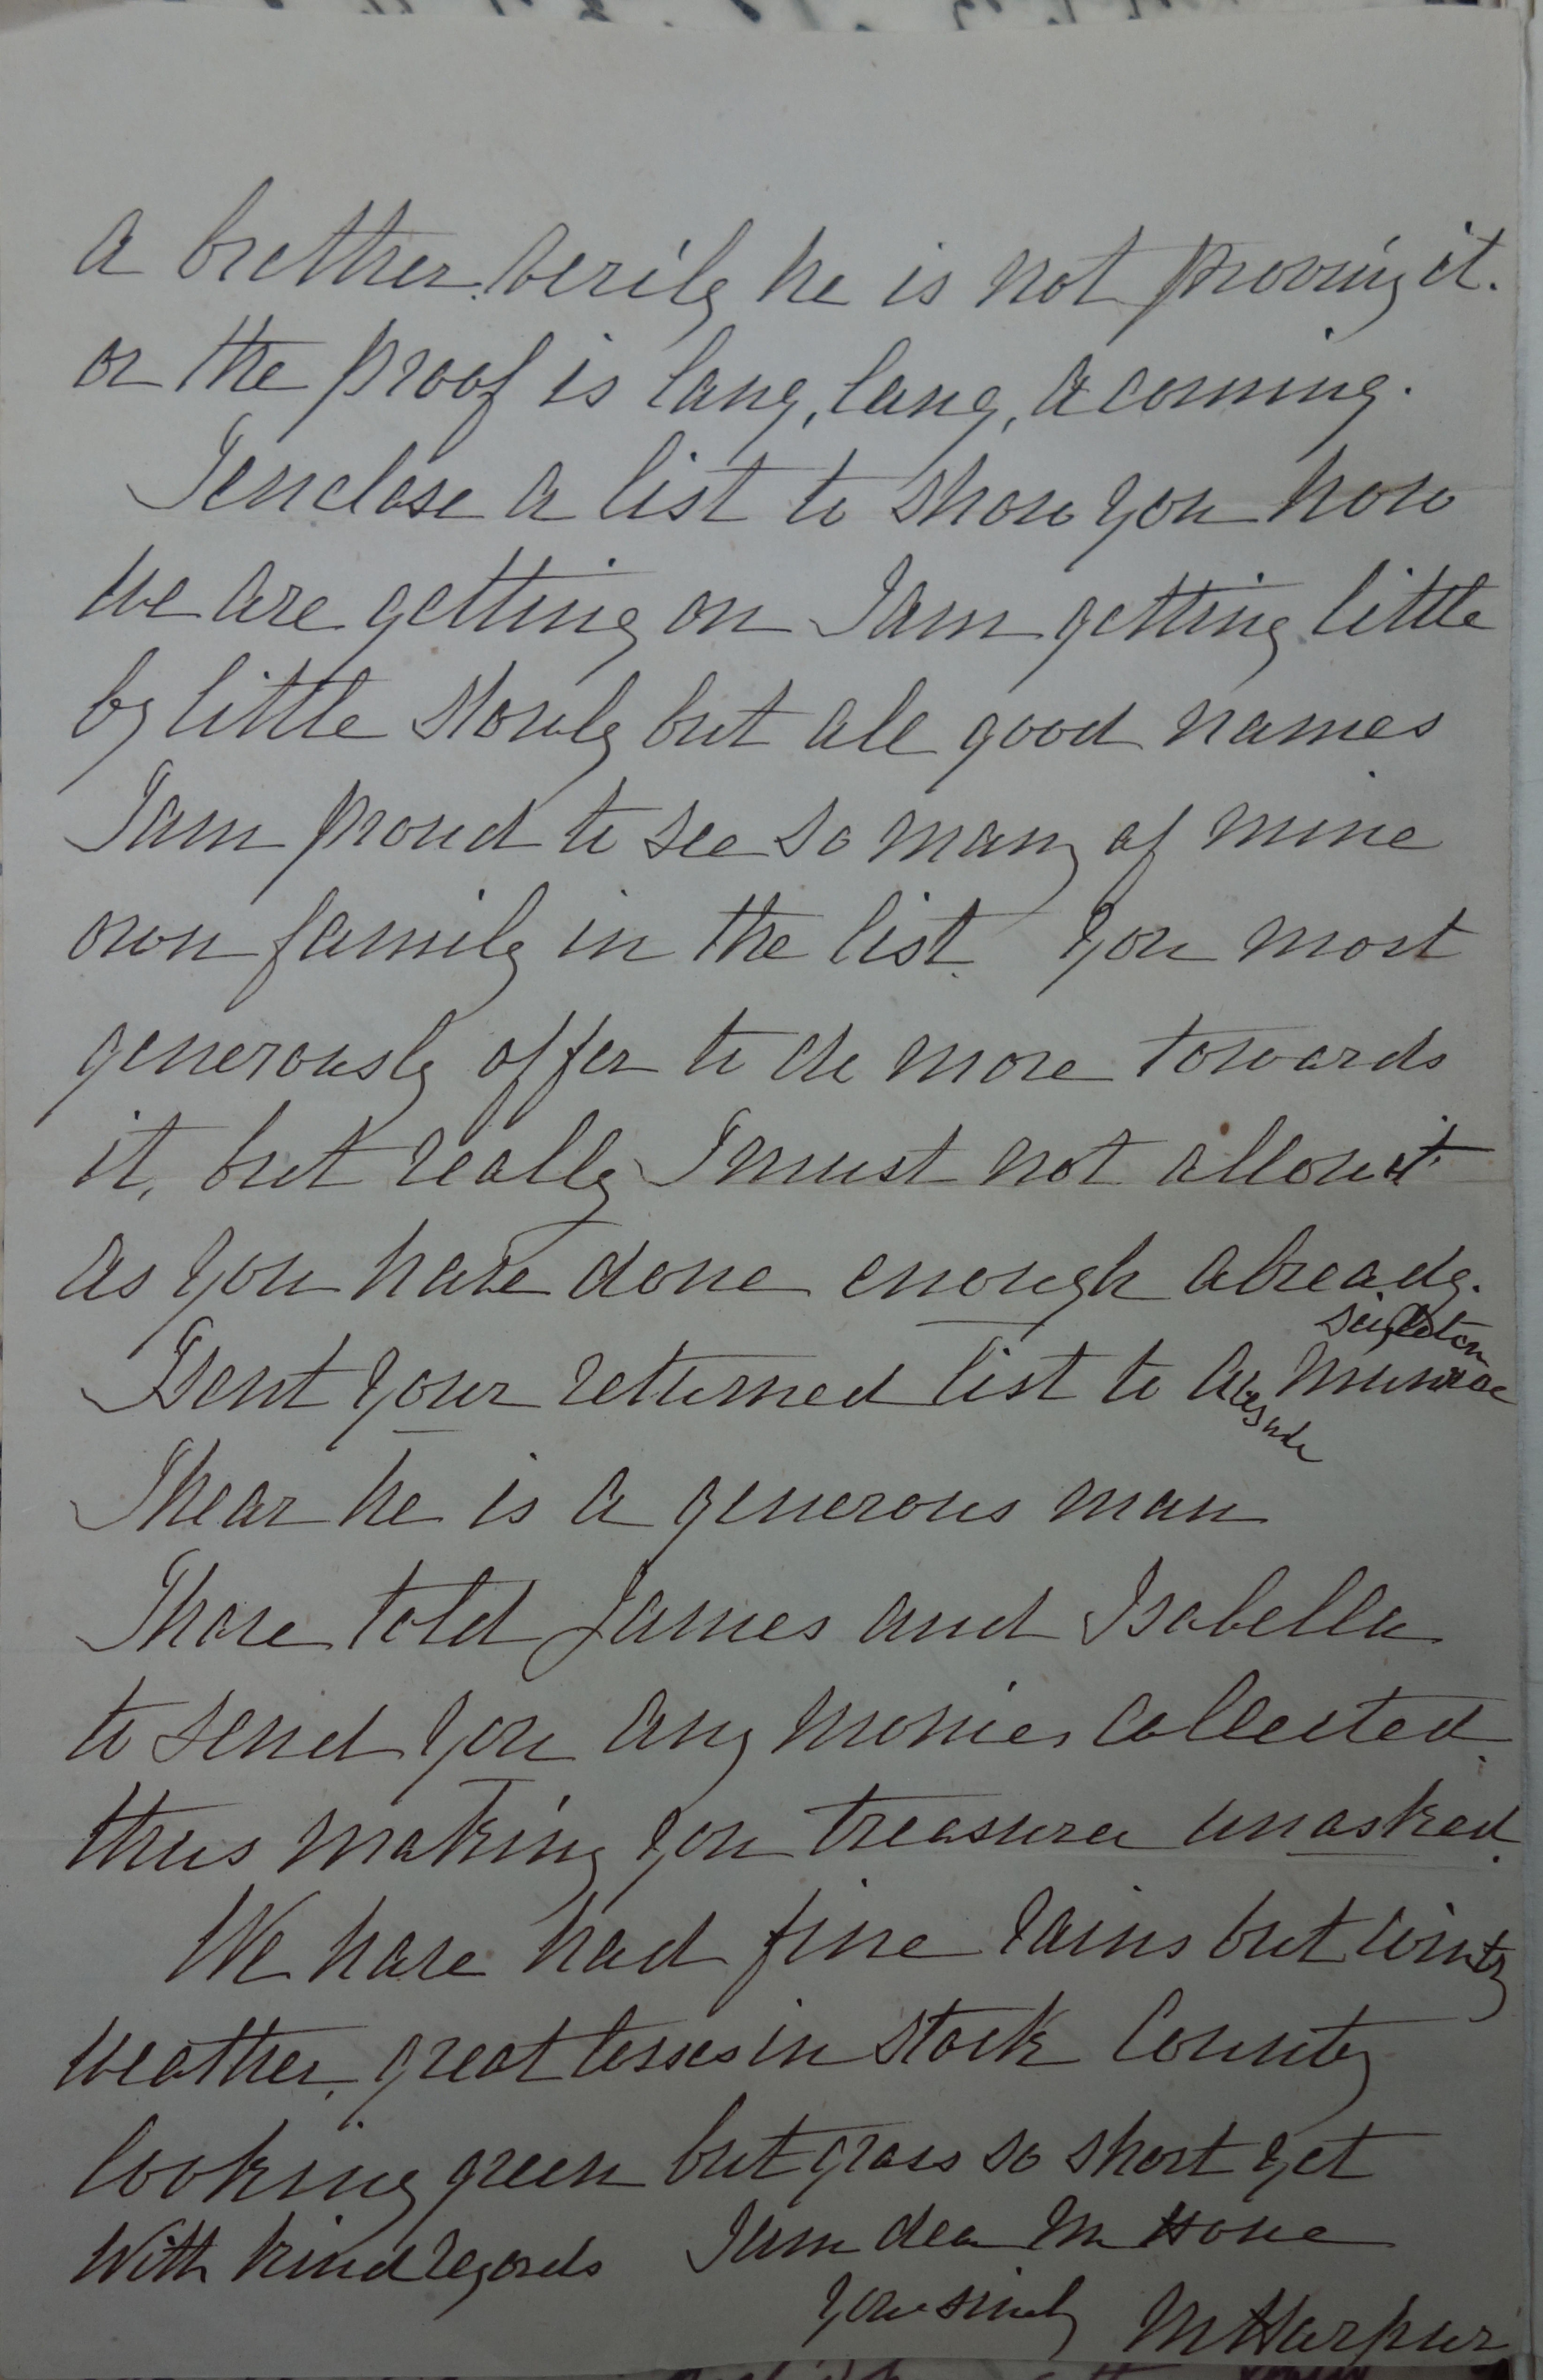 a brother. verily he is not proving it.
or the proof is lang, lang, a coming.
I enclose a list to show you how
we are getting on I am getting little
by little slowly but all good names
I am proud to see so many of mine
own family in the list. You most
generously offer to do more towards
it, but really I must not allow it
as you have done enough already.
Singleton
I sent your returned list to Munroe
I hear he is a generous man
I have told James and Isabella
to send you any monies collected.
thus making you treasurer unasked.
We have had fine rains but wintry
weather, great losses in stock Country
looking green but grass so short yet
With kind regards I am dear Mr Hone
M Harpur